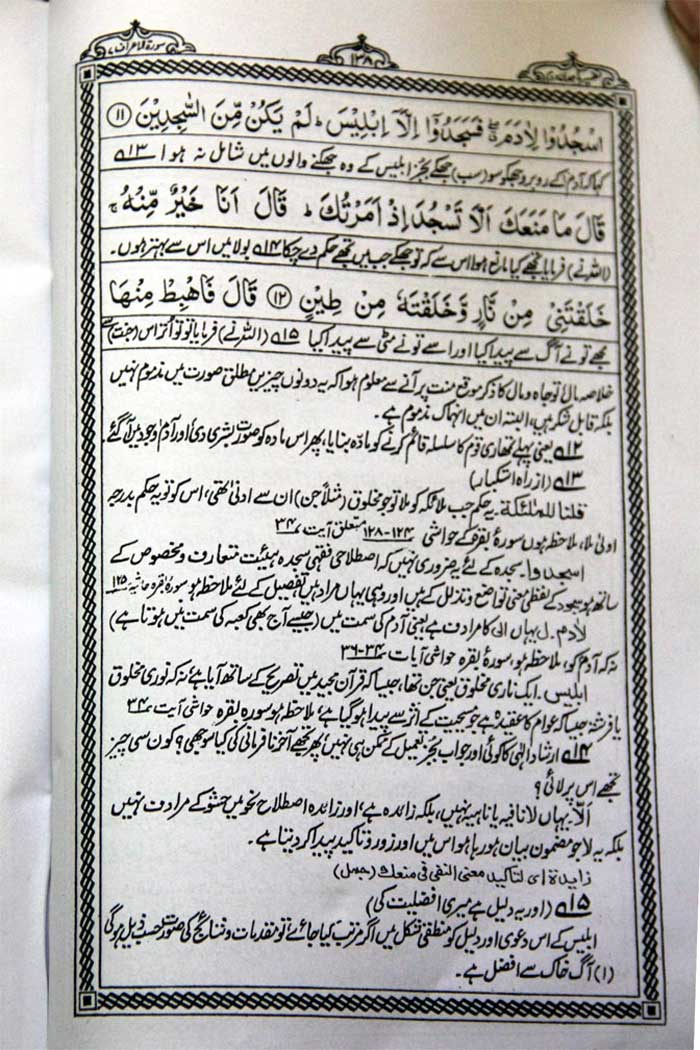 سورة الاعراف ۷
اسْجُدُوْا لِاٰدَمَ ۖ فَسَجَدُوْٓا اِلَّآ اِبْلِيْسَ ؕ لَمْ يَكُنْ مِّنَ السّٰجِدِيْنَ ﴿۱۱﴾
کہا کہ آدم کے روبرو جھکو سو (سب) جھکے بجز ابلیس کے وہ جھکنے والوں میں شامل نہ ہوا ۱۳ے
قَالَ مَا مَنَعَكَ اَلَّا تَسْجُدَ اِذْ اَمَرْتُكَ ؕ قَالَ اَنَا خَيْرٌ مِّنْهُ ۚ
(اللہ نے) فرمایا تجھے کیا مانع ہوا اس سے کہ تو جھکے جب میں تجھے حکم دے چکا ۱۴ے بولا میں اس سے بہتر ہوں۔
خَلَقْتَنِيْ مِنْ نَّارٍ وَّخَلَقْتَهٗ مِنْ طِيْنٍ ﴿۱۲﴾ قَالَ فَاهْبِطْ مِنْهَا
مجھے تو نے آگ سے پیدا کیا اور اسے تو نے مٹی سے پیدا کیا ۱۵ے (اللہ نے) فرمایا تو تو اُتر اس (جنت) سے
خلاصہ مال تو جاہ و مال کا ذکر موقع منت پر آنے سے معلوم ہوا کہ یہ دونوں چیزیں مطلق صورت میں مذموم نہیں
بلکہ قابل شکر ہیں، البتہ ان میں انہماک مذموم ہے۔
۱۲ے یعنی پہلے تمھاری قوم کا سلسلہ قائم کرنے کو مادّہ بنایا، پھر اس مادہ کو صورت بشری دی اور آدم وجود میں آگئے۔
۱۳ے (از راہ استکبار)
قلنا للملٰئکة۔ یہ حکم جب ملائکہ کو ملا تو جو مخلوق (مثلاً جن) ان سے ادنیٰ تھی، اس کو تو یہ حکم بدرجہ
اولیٰ ملا، ملاحظہ ہوں سورۂ بقرہ کے حواشی ۱۲۴-۱۲۸ متعلق آیت ۳۴
اسجدوا۔ سجدہ کے لئے یہ ضروری نہیں کہ اصطلاحی فقہی سجدہ ہیئت متعارف و مخصوص کے
ساتھ ہو سجود کے لفظی معنی تواضع و تذلل کے ہیں اور وہی یہاں مراد ہیں تفصیل کے لئے ملاحظہ ہو سورۂ بقرہ حاشیہ ۱۲۵
لآدم۔ ل یہاں الیٰ کا مرادف ہے یعنی آدم کی سمت میں (جیسے آج بھی کعبہ کی سمت میں ہوتا ہے)
نہ کہ آدم کو، ملاحظہ ہو، سورۂ بقرہ حواشی آیات ۳۴-۳۶
ابلیس۔ ایک ناری مخلوق یعنی جن تھا، جیسا کہ قرآن مجید میں تصریح کے ساتھ آیا ہے نہ کہ نوری مخلوق
یا فرشتہ جیسا کہ عوام کا عقیدہ ہے جو مسیحیت کے اثر سے پیدا ہوگیا ہے، ملاحظہ ہو سورہ بقرہ حواشی آیت ۳۴
۱۴ے ارشاد الٰہی کا کوئی اور جواب بجز تعمیل کے ممکن ہی نہیں، پھر تجھے آخر نافرمانی کی کیا سوجھی؟ کون سی چیز
تجھے اس پر لائی؟
الّا۔ یہاں لا نافیہ یا ناہیہ نہیں، بلکہ زائدہ ہے، اور زائدہ اصطلاح نحو میں حشو کے مرادف نہیں
بلکہ یہ لا جو مضمون بیان ہو رہا ہو اس میں اور زور و تاکید پیدا کر دیتا ہے۔
زایدة ای لتاکید معنی النفی فی منعك (جمل)
۱۵ے (اور یہ دلیل ہے میری افضلیت کی)
ابلیس کے اس دعوی اور دلیل کو منطقی شکل میں اگر مرتب کیا جائے تو مقدمات و نتائج کی صورت حسب ذیل ہوگی
(۱) آگ خاک سے افضل ہے۔